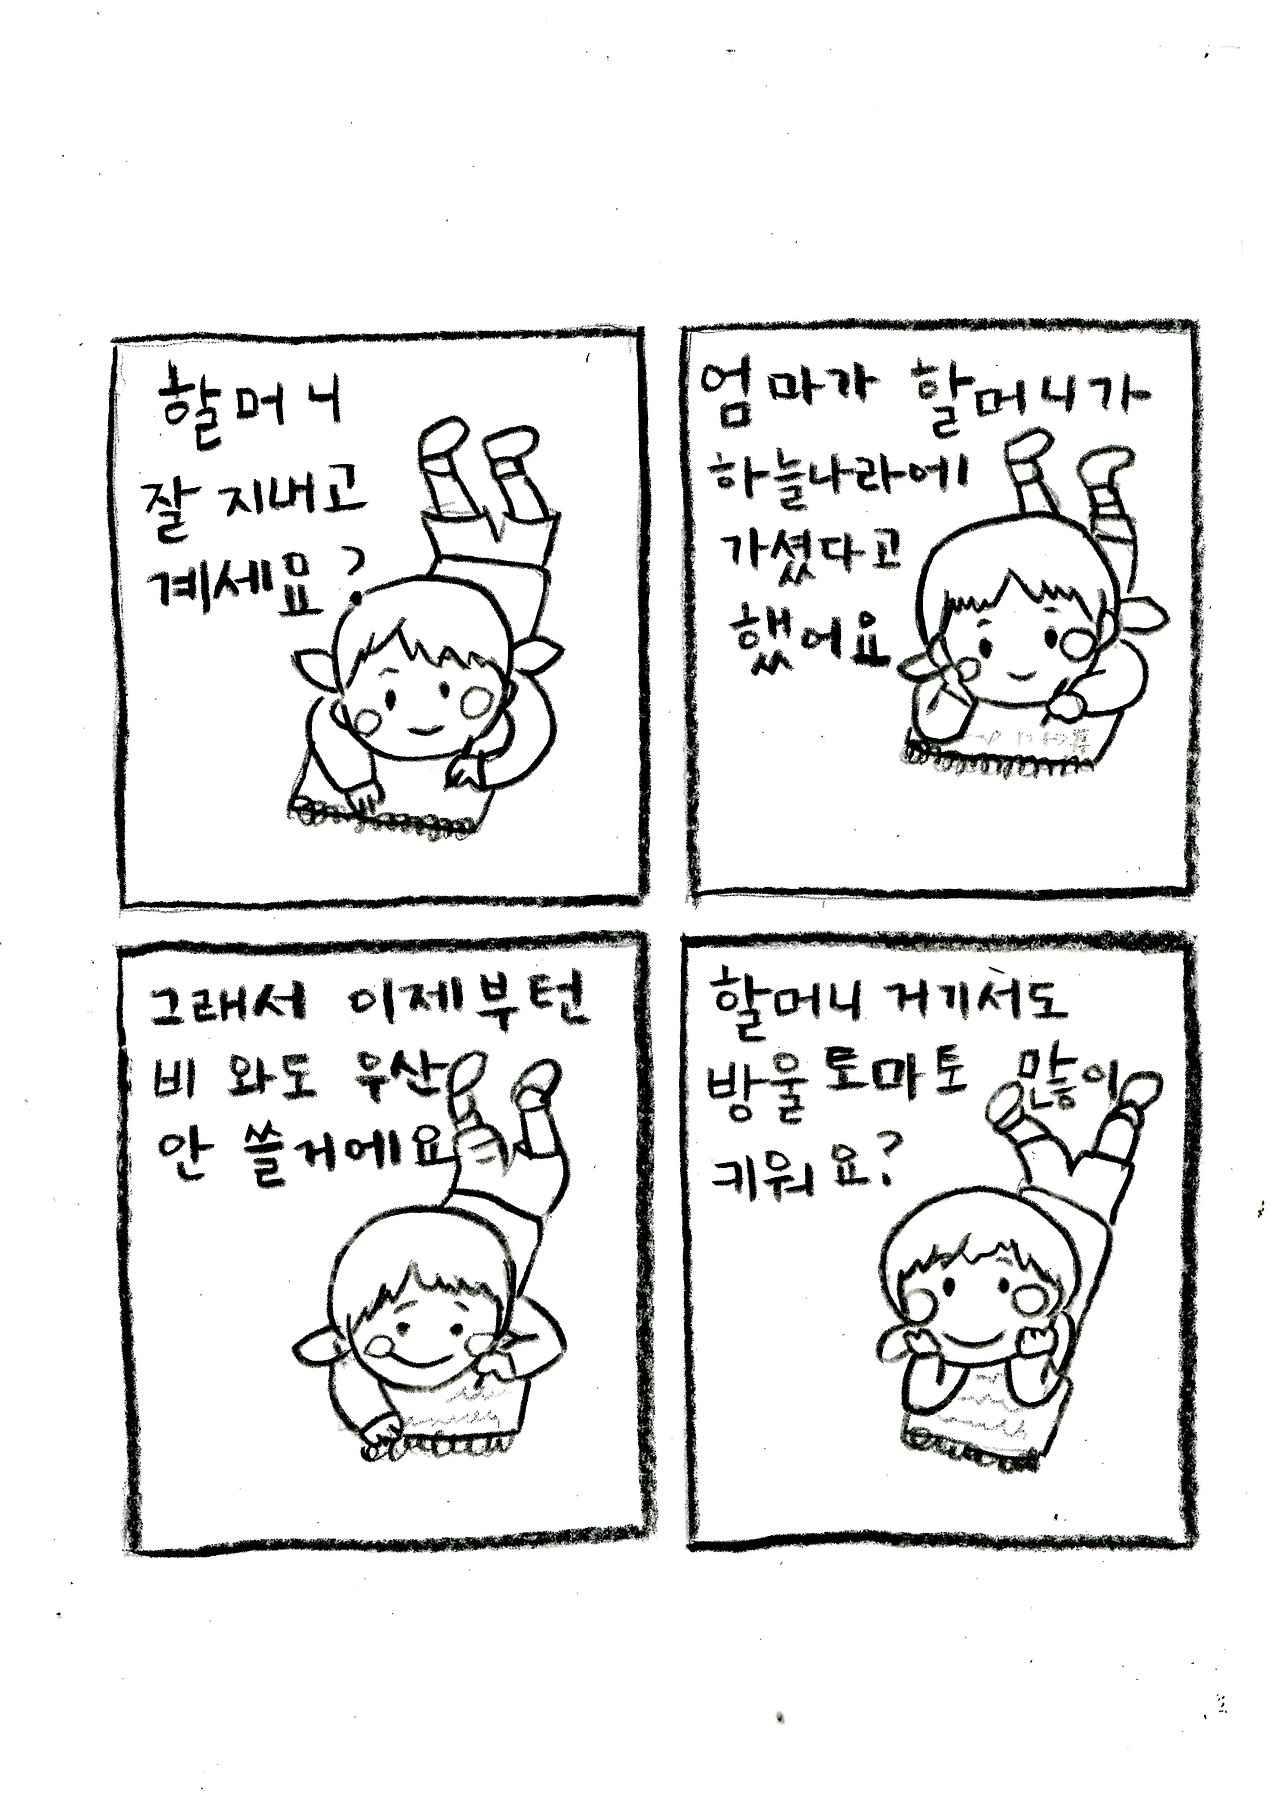 할머니
잘 지내고
계세요?
엄마가 할머니가
하늘나라에
가셨다고
했어요
그래서 이제부턴
비 와도 우산
안 쓸거에요
할머니 거기서도
방울토마토 많이
키워요?